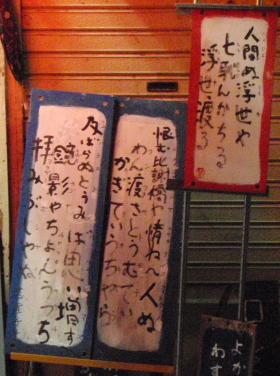 人間ぬ浮世や
浮世渡る
恨む比謝橋や情ねへ人ぬ
わん渡さとぅむてぃ
かきてぃうちゃら
及ばらぬとぅみば思い増す
鏡影やちょんうつち
拝みぶしゃぬ
よか
わす